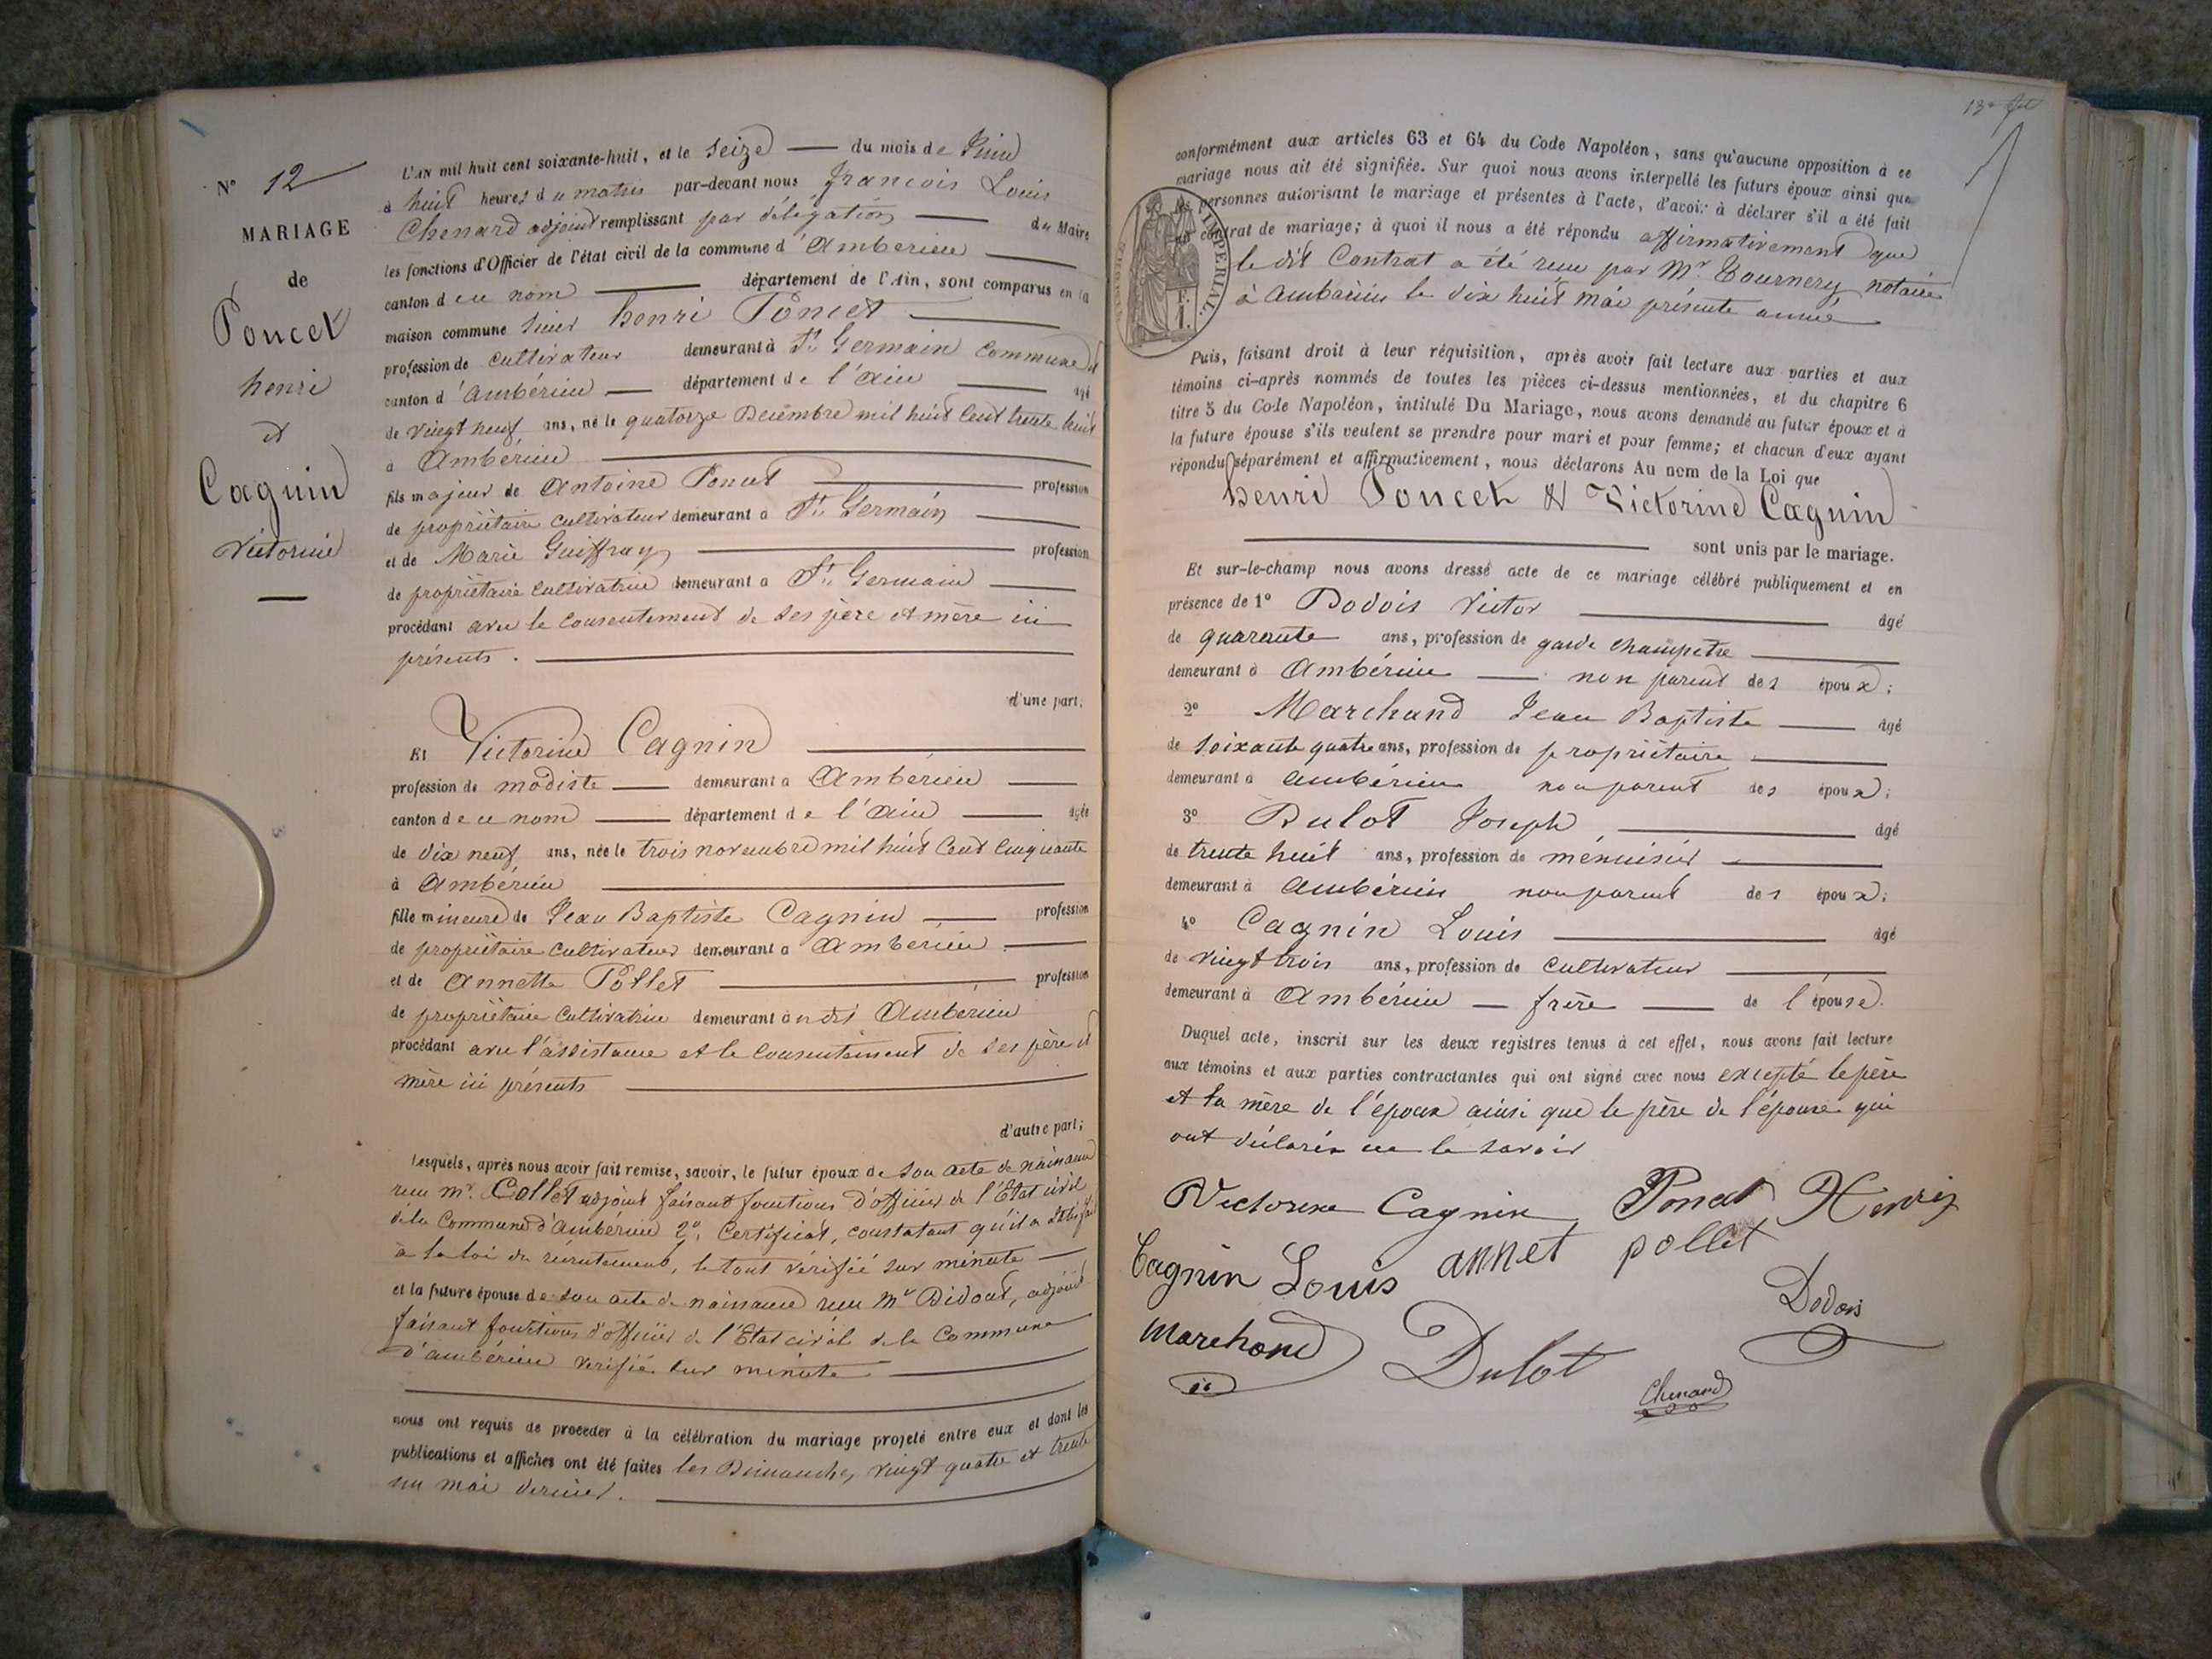 N° 12
MARIAGE
de
Poncet
henri
et
Cagnin
Victorine
L'AN mil huit cent soixante-huit, et le Seize du mois de Juin
à huit heures du matin par-devant nous françois Louis
Chenard adjoint remplissant par délégation du Maire
les fonctions d'Officier de l'état civil de la commune d'Ambérieu
canton de ce nom département de l'Ain, sont comparus en la
maison commune sieur henri Poncet
profession de cultivateur demeurant à St Germain Commune et
canton d'Ambérieu département de l'Ain âgé
de vingt neuf ans, né le quatorze Decembre mil huit Cent trente huit
à Ambérieu
fils majeur de Antoine Poncet profession
de propriétaire cultivateur demeurant à St Germain
et de Marie Guiffray profession
de propriétaire cultivatrice demeurant à St Germain
procédant avec le consentement de ses père et mère ici
présents.
d'une part;
Et Victorine Cagnin
profession de modiste demeurant à Ambérieu
canton de ce nom département de l'Ain âgée
de dix neuf ans, née le trois novembre mil huit Cent Cinquante
à Ambérieu
fille mineure de Jean Baptiste Cagnin profession
de propriétaire cultivateur demeurant à Ambérieu
et de Annette Pollet profession
de propriétaire Cultivatrice demeurant à Ambérieu
procédant avec l'assistance et le Consentement de ses père et
mère ici présents
d'autre part;
Lesquels, après nous avoir fait remise, savoir, le futur époux de son acte de naissance
reçu Mr. Collet adjoint faisant fonctions d'officier de l'Etat civil
de la Commune d'Ambérieu 2° Certificat, constatant qu'il a satisfait
à la loi du recrutement, le tout vérifié sur minute
et la future épouse de son acte de naissance reçu Mr Bidout, adjoint
faisant fonctions d'officier de l'Etat civil de la Commune
d'Ambérieu vérifié sur minute
nous ont requis de procéder à la célébration du mariage projeté entre eux et dont les
publications et affiches ont été faites les Dimanches, vingt quatre et trente
un mai dernier.
conformément aux articles 63 et 64 du Code Napoléon, sans qu'aucune opposition à ce
mariage nous ait été signifiée. Sur quoi nous avons interpellé les futurs époux ainsi que
les personnes autorisant le mariage et présentes à l'acte, d'avoir à déclarer s'il a été fait
un contrat de mariage; à quoi il nous a été répondu affirmativement que
le dit Contrat a été reçu par Mr Tournery notaire
à Ambérieu le dix huit mai présente année
IMPERIAL
Puis, faisant droit à leur réquisition, après avoir fait lecture aux parties et aux
témoins ci-après nommés de toutes les pièces ci-dessus mentionnées, et du chapitre 6
titre 5 du Code Napoléon, intitulé Du Mariage, nous avons demandé au futur époux et à
la future épouse s'ils veulent se prendre pour mari et pour femme; et chacun d'eux ayant
répondu séparément et affirmativement, nous déclarons Au nom de la Loi que
henri Poncet & Victorine Cagnin
sont unis par le mariage.
Et sur-le-champ nous avons dressé acte de ce mariage célébré publiquement et en
présence de 1° Dodois Victor âgé
de quarante ans, profession de garde champetre
demeurant à Ambérieu non parent des époux;
2° Marchand Jean Baptiste âgé
de soixante quatre ans, profession de propriétaire
demeurant à Ambérieu non parent des époux;
3° Dulot Joseph âgé
de trente huit ans, profession de ménuisier
demeurant à Ambérieu non parent des époux;
4° Cagnin Louis âgé
de vingt trois ans, profession de cultivateur
demeurant à Ambérieu frère de l'épouse.
Duquel acte, inscrit sur les deux registres tenus à cet effet, nous avons fait lecture
aux témoins et aux parties contractantes qui ont signé avec nous excepté le père
et la mère de l'époux ainsi que le père de l'épouse qui
ont déclarés ne le savoir
Victorine Cagnin Poncet Henri
Cagnin Louis annet pollet
Dodois
Marchand Dulot
Chenard